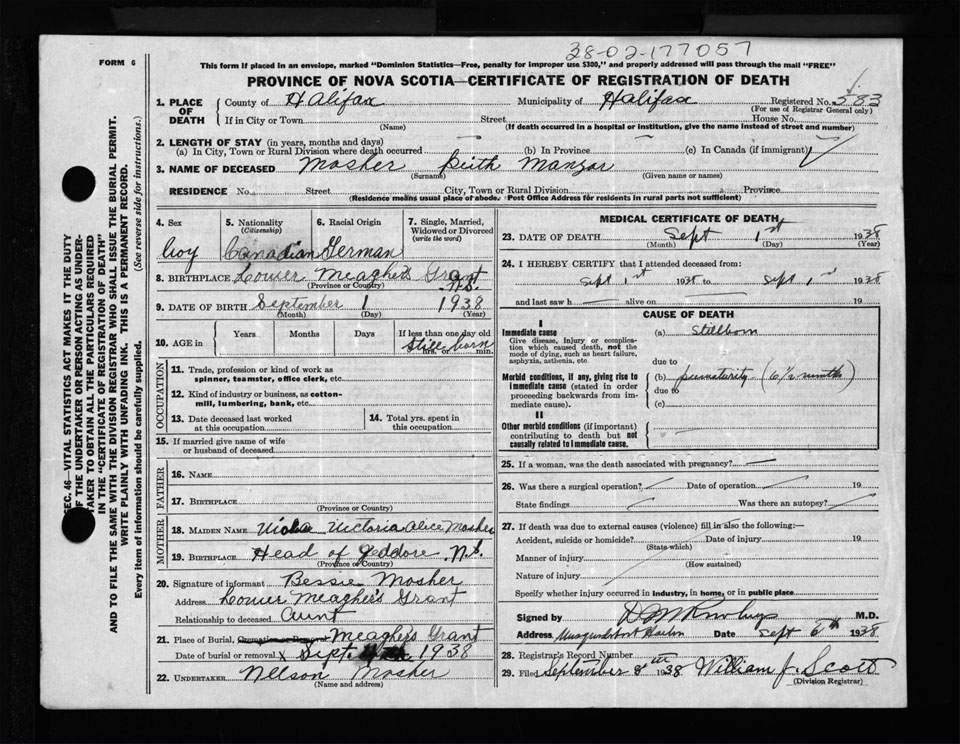 38-02-177057
FORM 6
This form if placed in an envelope, marked "Dominion Statistics—Free, penalty for improper use $300," and properly addressed will pass through the mail "FREE"
PROVINCE OF NOVA SCOTIA—CERTIFICATE OF REGISTRATION OF DEATH
1. PLACE OF DEATH
County of Halifax Municipality of Halifax Registered No. 583
(For use of Registrar General only)
If in City or Town Street House No.
(Name) (If death occurred in a hospital or institution, give the name instead of street and number)
2. LENGTH OF STAY (in years, months and days)
(a) In City, Town or Rural Division where death occurred (b) In Province (c) In Canada (if immigrant)
3. NAME OF DECEASED Mosher Keith
(Surname) (Given name or names)
RESIDENCE No. Street City, Town or Rural Division Province
(Residence means usual place of abode. Post Office Address for residents in rural parts not sufficient)
4. Sex 5. Nationality (Citizenship) 6. Racial Origin 7. Single, Married, Widowed or Divorced (write the word)
boy Canadian German
8. BIRTHPLACE Lower Meagher's Grant N.S.
(Province or Country)
9. DATE OF BIRTH September 1 1938
(Month) (Day) (Year)
10. AGE in Years Months Days If less than one day old
Still born
hrs. or min.
OCCUPATION
11. Trade, profession or kind of work as spinner, teamster, office clerk, etc.
12. Kind of industry or business, as cotton-mill, lumbering, bank, etc.
13. Date deceased last worked at this occupation
14. Total yrs. spent in this occupation
15. If married give name of wife or husband of deceased
FATHER
16. NAME
17. BIRTHPLACE
(Province or Country)
MOTHER
18. MAIDEN NAME Viola Victoria Alice Mosher
19. BIRTHPLACE Head of Jeddore N.S.
(Province or Country)
20. Signature of informant Bessie Mosher
Address Lower Meagher's Grant
Relationship to deceased Aunt
21. Place of Burial, Cremation or Removal Meagher's Grant
Date of burial or removal Sept. 1938
22. UNDERTAKER Nelson Mosher
(Name and address)
MEDICAL CERTIFICATE OF DEATH
23. DATE OF DEATH Sept 1st 1938
(Month) (Day) (Year)
24. I HEREBY CERTIFY that I attended deceased from:
Sept 1st 1938 to Sept 1st 1938
and last saw h alive on 19
CAUSE OF DEATH
I
Immediate cause (a) Stillborn
Give disease, injury or complication which caused death, not the mode of dying, such as heart failure, asphyxia, asthenia, etc.
due to
Morbid conditions, if any, giving rise to immediate cause (stated in order proceeding backwards from immediate cause).
(b) prematurity (6 1/2 months)
due to
(c)
II
Other morbid conditions (if important) contributing to death but not causally related to immediate cause.
25. If a woman, was the death associated with pregnancy?
26. Was there a surgical operation? Date of operation 19
State findings Was there an autopsy?
27. If death was due to external causes (violence) fill in also the following:—
Accident, suicide or homicide? Date of injury 19
(State which)
Manner of injury
(How sustained)
Nature of injury
Specify whether injury occurred in industry, in home, or in public place
Signed by M.D.
Address Musquodoboit Harbor Date Sept 6th 1938
28. Registrar's Record Number
29. Filed September 8th 1938 William J. Scott
(Division Registrar)
SEC. 46—VITAL STATISTICS ACT MAKES IT THE DUTY
OF THE UNDERTAKER OR PERSON ACTING AS UNDER-
TAKER TO OBTAIN ALL THE PARTICULARS REQUIRED
IN THE "CERTIFICATE OF REGISTRATION OF DEATH"
AND TO FILE THE SAME WITH THE DIVISION REGISTRAR WHO SHALL ISSUE THE BURIAL PERMIT.
WRITE PLAINLY WITH UNFADING INK. THIS IS A PERMANENT RECORD.
Every item of information should be carefully supplied. (See reverse side for instructions.)